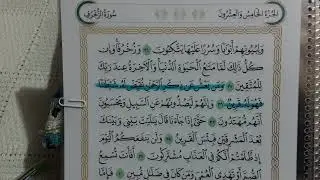 الجزء الخامس والعشرون سورة الزخرف
ولبيوتهم أبوابا وسررا عليها يتكئون ٣٤ وزخرفا وإن
كل ذلك لما متاع الحيوة الدنيا والآخرة عند ربك
للمتقين ٣٥ ومن يعش عن ذكر الرحمن نقيض له شيطانا
فهو له قرين ٣٦ وإنهم ليصدونهم عن السبيل ويحسبون
أنهم مهتدون ٣٧ حتى إذا جاءنا قال يليت بيني وبينك
بعد المشرقين فبئس القرين ٣٨ ولن ينفعكم اليوم
إذ ظلمتم أنكم في العذاب مشتركون ٣٩ أفأنت تسمع
الصم أو تهدي العمي ومن كان في ضلال مبين ٤٠ فإما